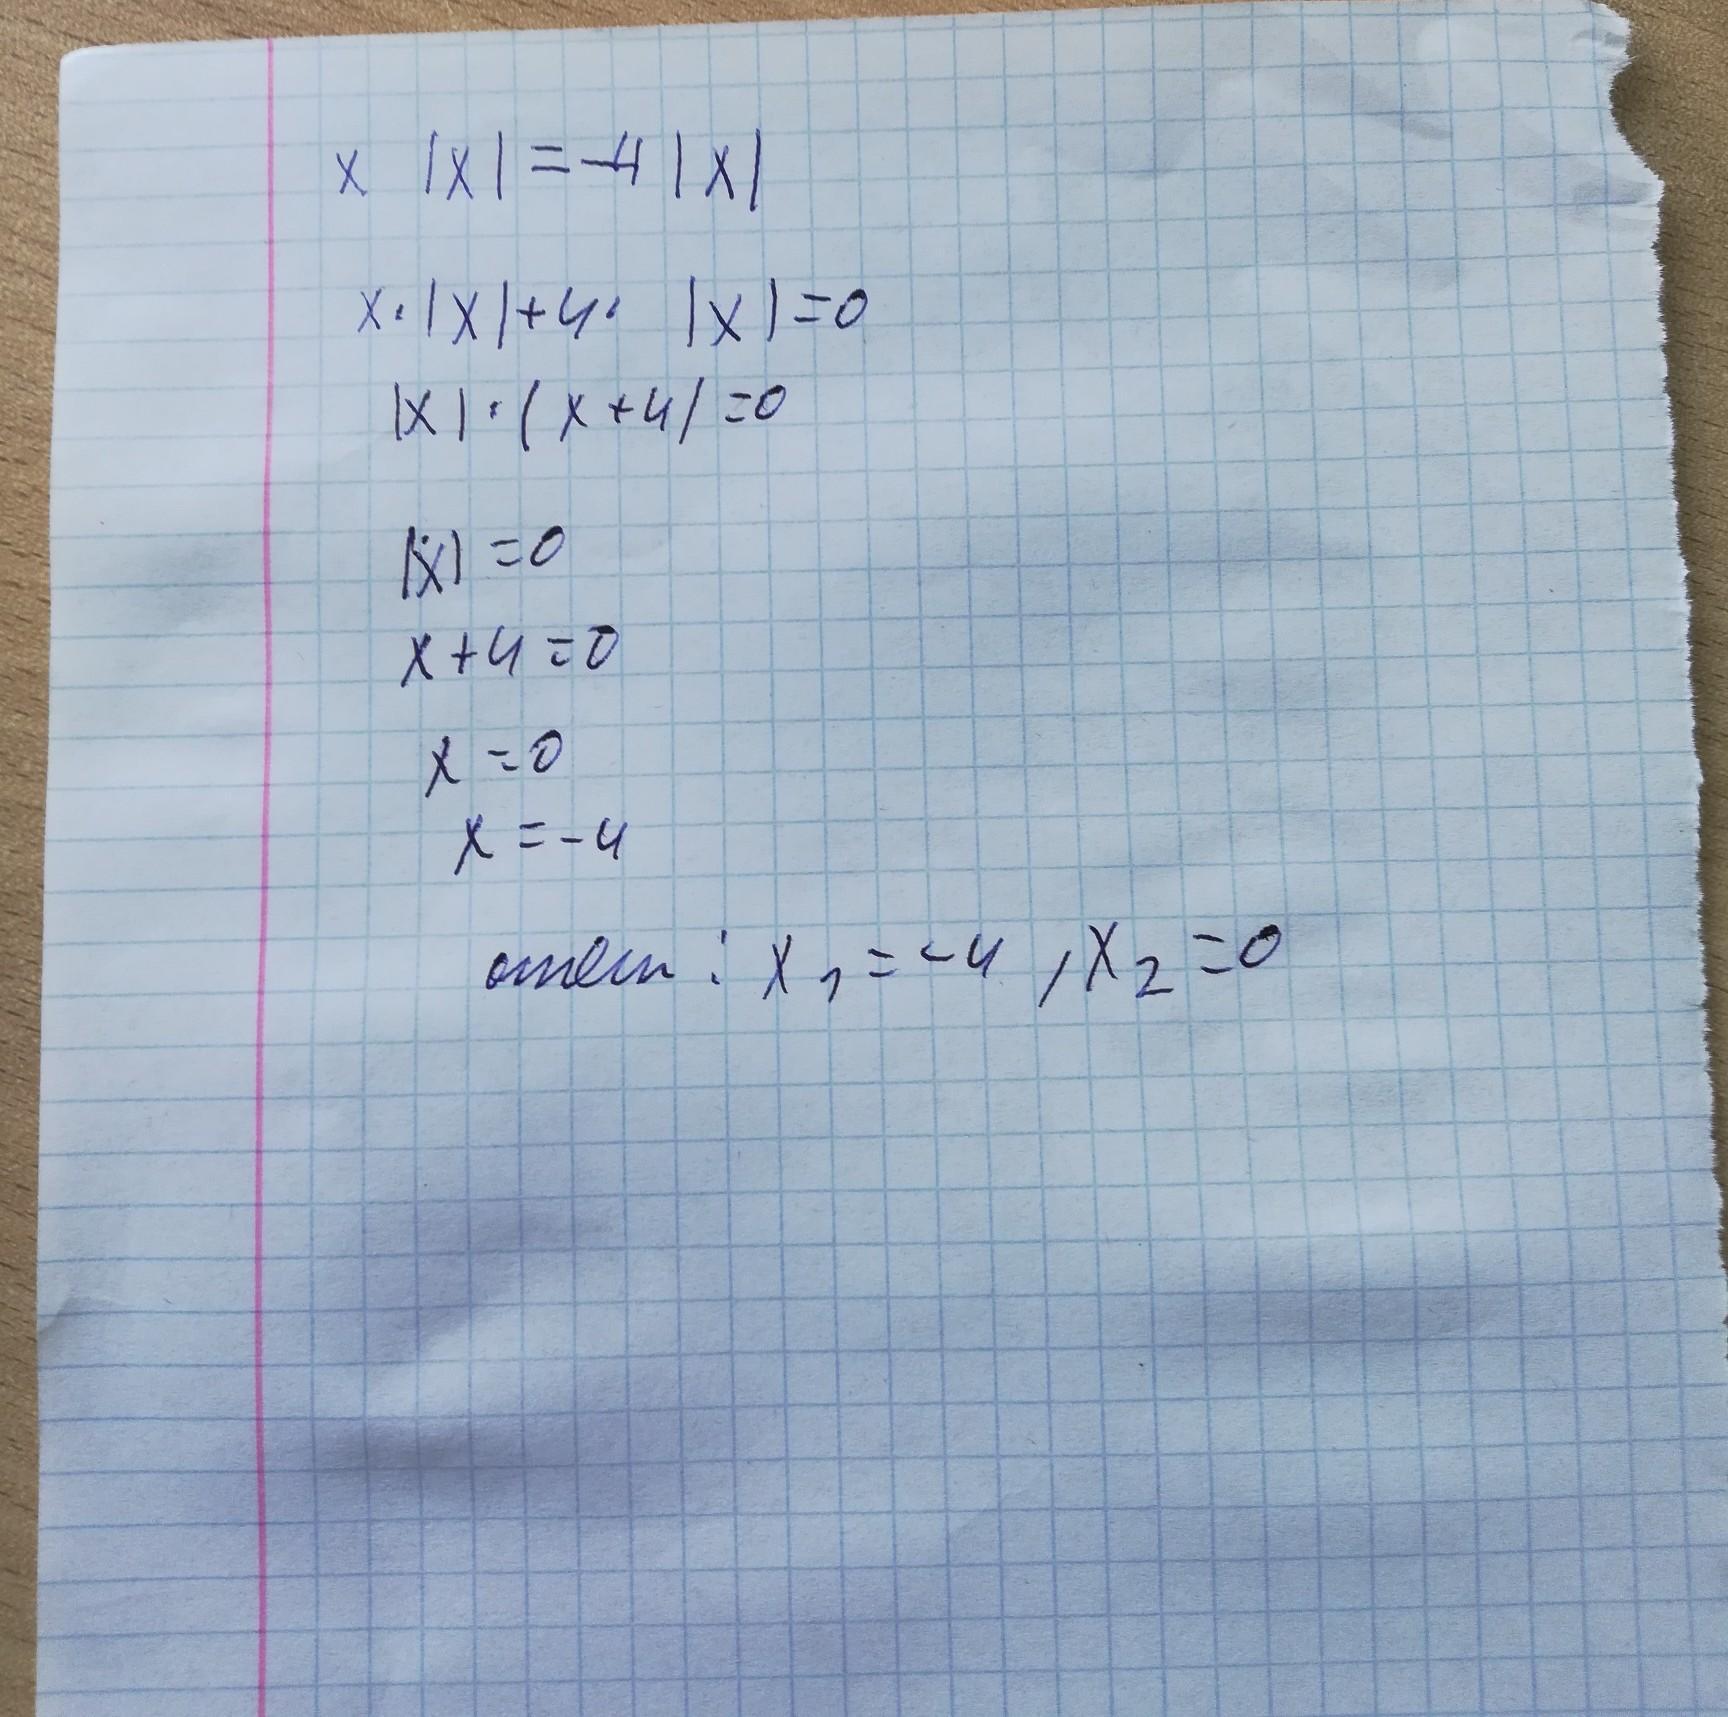 x |x| = -4 |x|
x · |x| + 4 · |x| = 0
|x| · (x + 4) = 0
|x| = 0
x + 4 = 0
x = 0
x = -4
ответ : x₁ = -4 , x₂ = 0